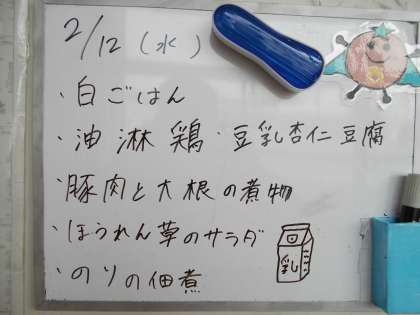 2/12(水)
・白ごはん
・油淋鶏・豆乳杏仁豆腐
・豚肉と大根の煮物
・ほうれん草のサラダ
・のりの佃煮
乳